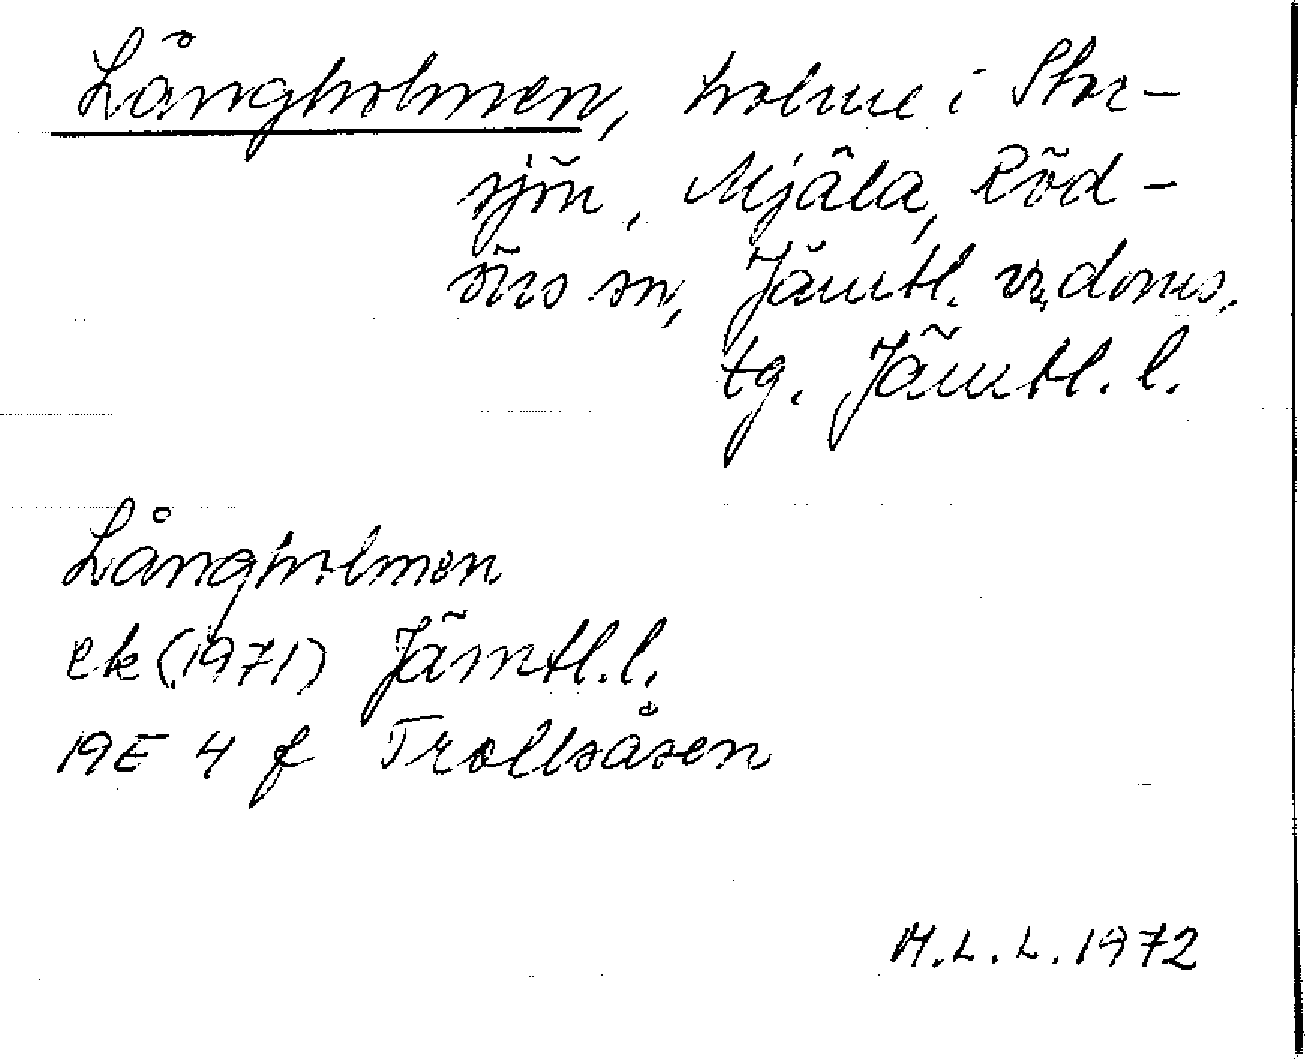 Långholmen, holme i Stor-
sjön, Mjäla, Röd-
öns sn, Jämtl. v. doms.
tg. Jämtl. l.
Långholmen
ek (1971) Jämtl. l.
19E 4 f Trollsåsen
M.L.L. 1972